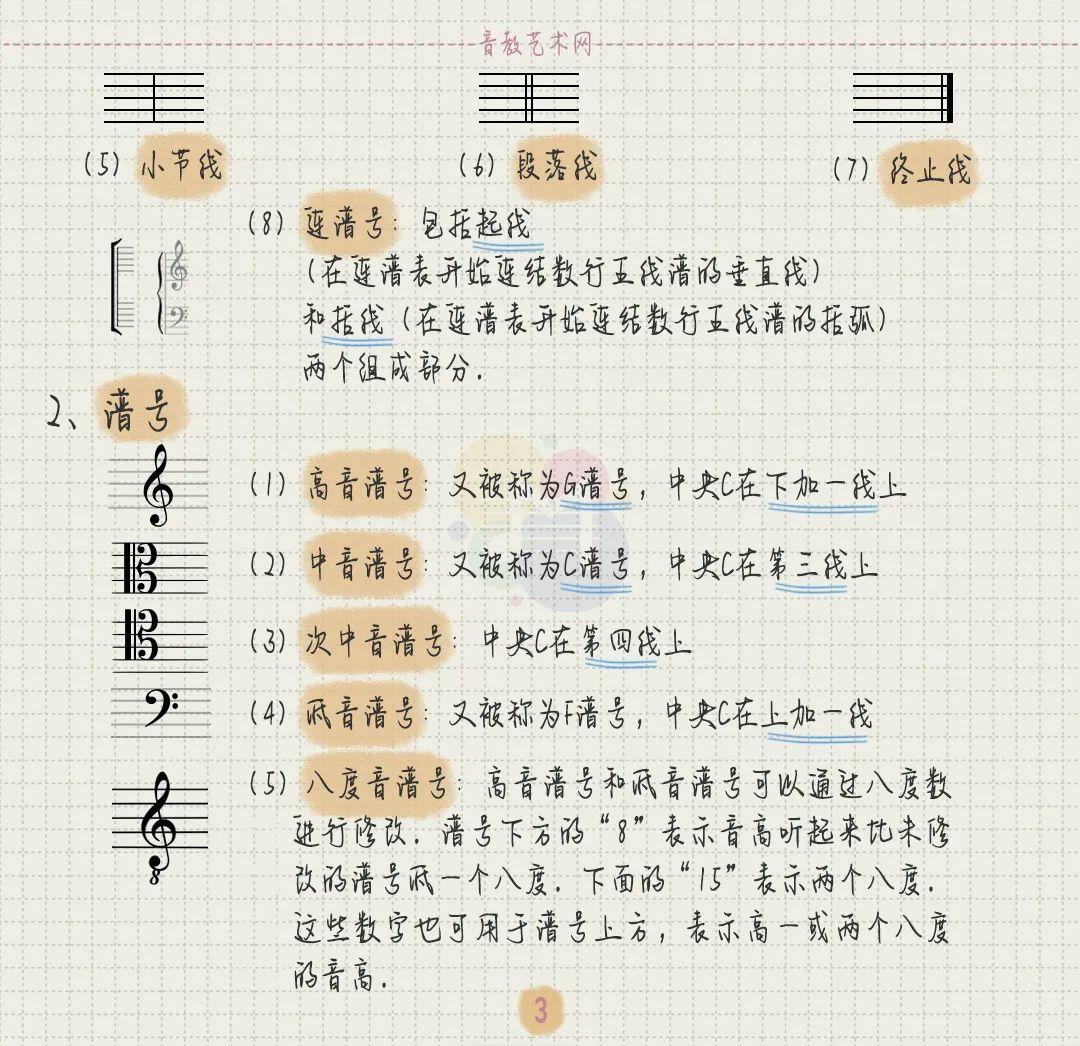 音教艺术网
(5) 小节线
(6) 段落线
(7) 终止线
(8) 连谱号：包括起线
(在连谱表开始连结数行五线谱的垂直线)
和括线 (在连谱表开始连结数行五线谱的括弧)
两个组成部分.
2、谱号
(1) 高音谱号：又被称为G谱号，中央C在下加一线上
(2) 中音谱号：又被称为C谱号，中央C在第三线上
(3) 次中音谱号：中央C在第四线上
(4) 低音谱号：又被称为F谱号，中央C在上加一线
(5) 八度音谱号：高音谱号和低音谱号可以通过八度数
进行修改. 谱号下方的“8”表示音高听起来比未修
改的谱号低一个八度. 下面的“15”表示两个八度.
这些数字也可用于谱号上方，表示高一或两个八度
的音高.
8
3